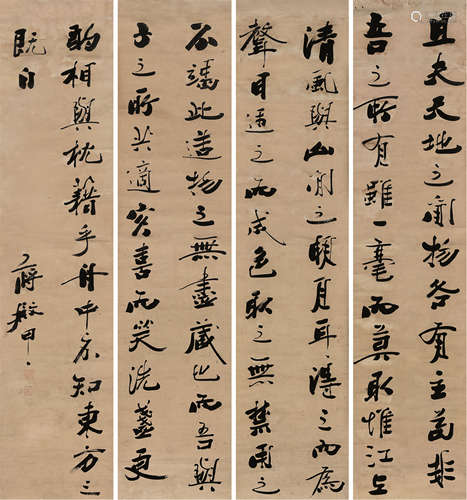 且夫天地之間物各有主苟非
吾之所有雖一毫而莫取惟江上
清風與山間之明月耳得之而為
聲目遇之而成色取之無禁用之
不竭此造物之無盡藏也而吾與
子之所共適客喜而笑洗盞更
酌相與枕藉乎舟中不知東方之
既白
蔣